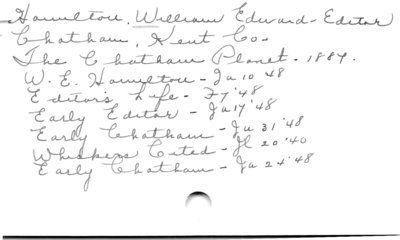 Hamilton, William Edward - Editor
Chatham, Kent Co -
The Chatham Planet - 1884.
W. E. Hamilton - Ja 10 '48
Editor's Life - F 7 '48
Early Editor - Ja 17 '48
Early Chatham - Ja 31 '48
Whiskers Cited - Jl 20 '40
Early Chatham - Ja 24 '48